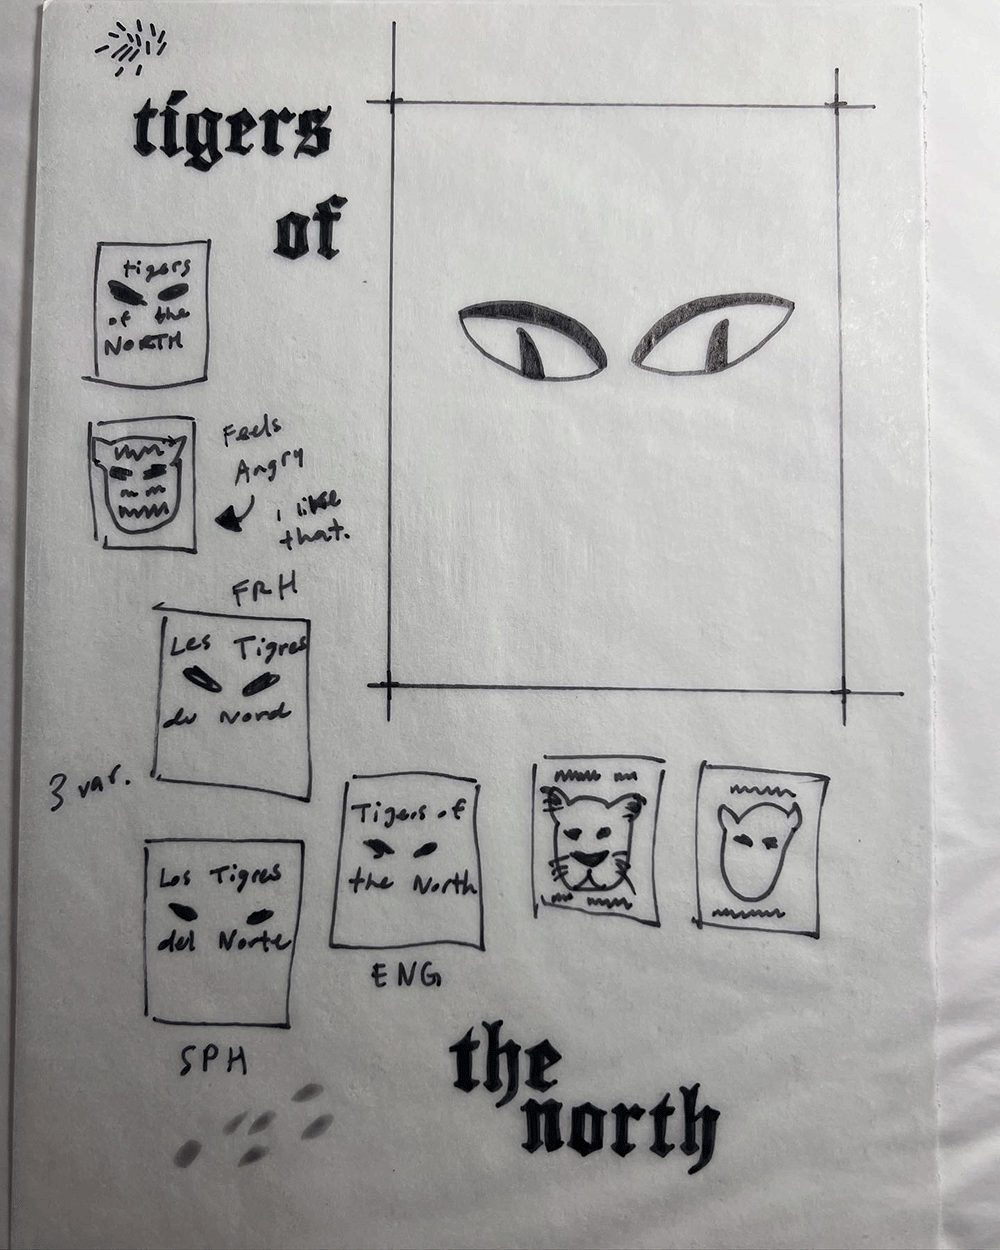 tigers
of
tigers
of the
NORTH
Feels
Angry
i like
that.
FRH
Les Tigres
du Nord
3 var.
Los Tigres
del Norte
SPH
Tigers of
the North
ENG
the
north